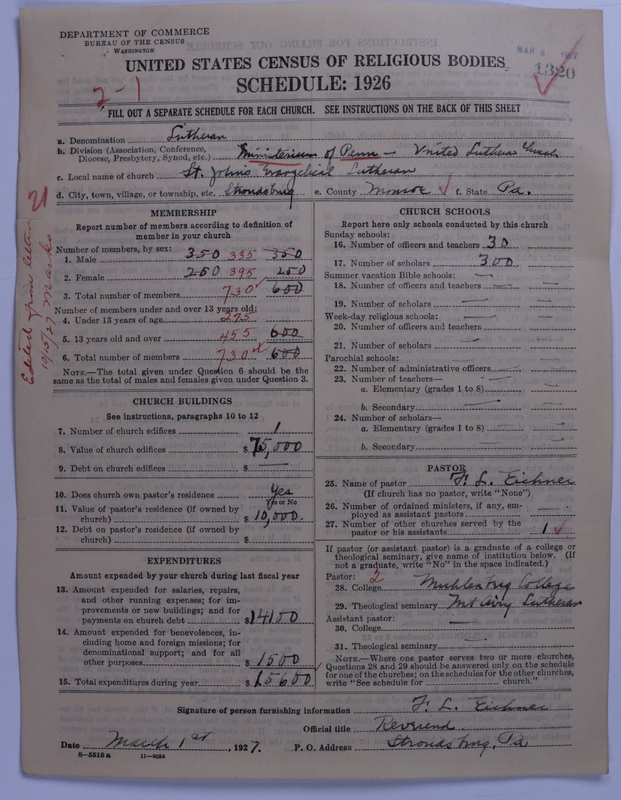 DEPARTMENT OF COMMERCE
BUREAU OF THE CENSUS
WASHINGTON
1320
UNITED STATES CENSUS OF RELIGIOUS BODIES
SCHEDULE: 1926
2-1
FILL OUT A SEPARATE SCHEDULE FOR EACH CHURCH. SEE INSTRUCTIONS ON THE BACK OF THIS SHEET
a. Denomination Lutheran
b. Division (Association, Conference, Diocese, Presbytery, Synod, etc.) Ministerium of Penn – United Lutheran Church
c. Local name of church St. Johns Evangelical Lutheran
d. City, town, village, or township, etc. Stroudsburg e. County Monroe f. State Pa.
Edited from letter 10/15/27 Marks
MEMBERSHIP
Report number of members according to definition of
member in your church
Number of members, by sex:
1. Male 350 335 350
2. Female 250 395 250
3. Total number of members 730 600
Number of members under and over 13 years old:
4. Under 13 years of age 275
5. 13 years old and over 455 600
6. Total number of members 730 600
NOTE.—The total given under Question 6 should be the
same as the total of males and females given under Question 3.
CHURCH BUILDINGS
See instructions, paragraphs 10 to 12
7. Number of church edifices 1
8. Value of church edifices $ 75,000
9. Debt on church edifices $ —
10. Does church own pastor's residence Yes
Yes or No
11. Value of pastor's residence (if owned by
church) $ 10,000.
12. Debt on pastor's residence (if owned by
church) $
EXPENDITURES
Amount expended by your church during last fiscal year
13. Amount expended for salaries, repairs,
and other running expenses; for im-
provements or new buildings; and for
payments on church debt $ 14100
14. Amount expended for benevolences, in-
cluding home and foreign missions; for
denominational support; and for all
other purposes $ 1500
15. Total expenditures during year $ 15600
CHURCH SCHOOLS
Report here only schools conducted by this church
Sunday schools:
16. Number of officers and teachers 30
17. Number of scholars 300
Summer vacation Bible schools: —
18. Number of officers and teachers —
19. Number of scholars —
Week-day religious schools: —
20. Number of officers and teachers —
21. Number of scholars —
Parochial schools:
22. Number of administrative officers —
23. Number of teachers—
a. Elementary (grades 1 to 8) —
b. Secondary —
24. Number of scholars—
a. Elementary (grades 1 to 8) —
b. Secondary —
PASTOR
25. Name of pastor F. L. Eichner
(If church has no pastor, write "None")
26. Number of ordained ministers, if any, em-
ployed as assistant pastors —
27. Number of other churches served by the
pastor or his assistants 1
If pastor (or assistant pastor) is a graduate of a college or
theological seminary, give name of institution below. (If
not a graduate, write "No" in the space indicated.)
Pastor: 2
28. College Muhlenburg College
29. Theological seminary Mt Airy Lutheran
Assistant pastor:
30. College
31. Theological seminary —
NOTE.—Where one pastor serves two or more churches,
Questions 28 and 29 should be answered only on the schedule
for one of the churches; on the schedules for the other churches,
write "See schedule for church."
Signature of person furnishing information F. L. Eichner
Official title Reverend
Date March 1st, 1927. P. O. Address Stroudsburg, Pa
8-5518a 11-9034